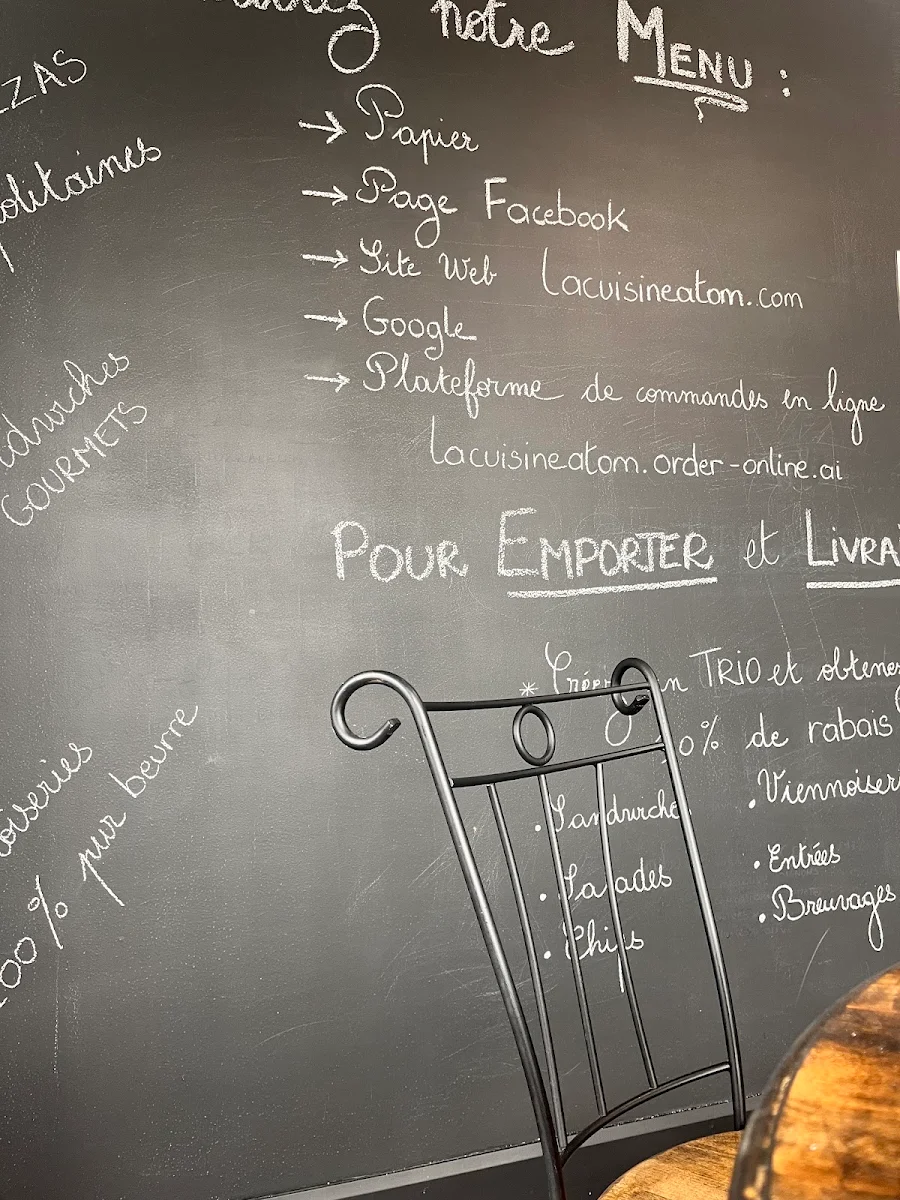 notre MENU :
→ Papier
→ Page Facebook
→ Site Web Lacuisineatom.com
→ Google
→ Plateforme de commandes en ligne
Lacuisineatom.order-online.ai
POUR EMPORTER et LIVRAI
* Créez un TRIO et obtenez
0% de rabais
. Sandwiche
. Salades
. Chips
. Viennoiser
. Entrées
. Breuvages
ZZAS
politaines
ndwiches
GOURMETS
oiseries
100% pur beurre